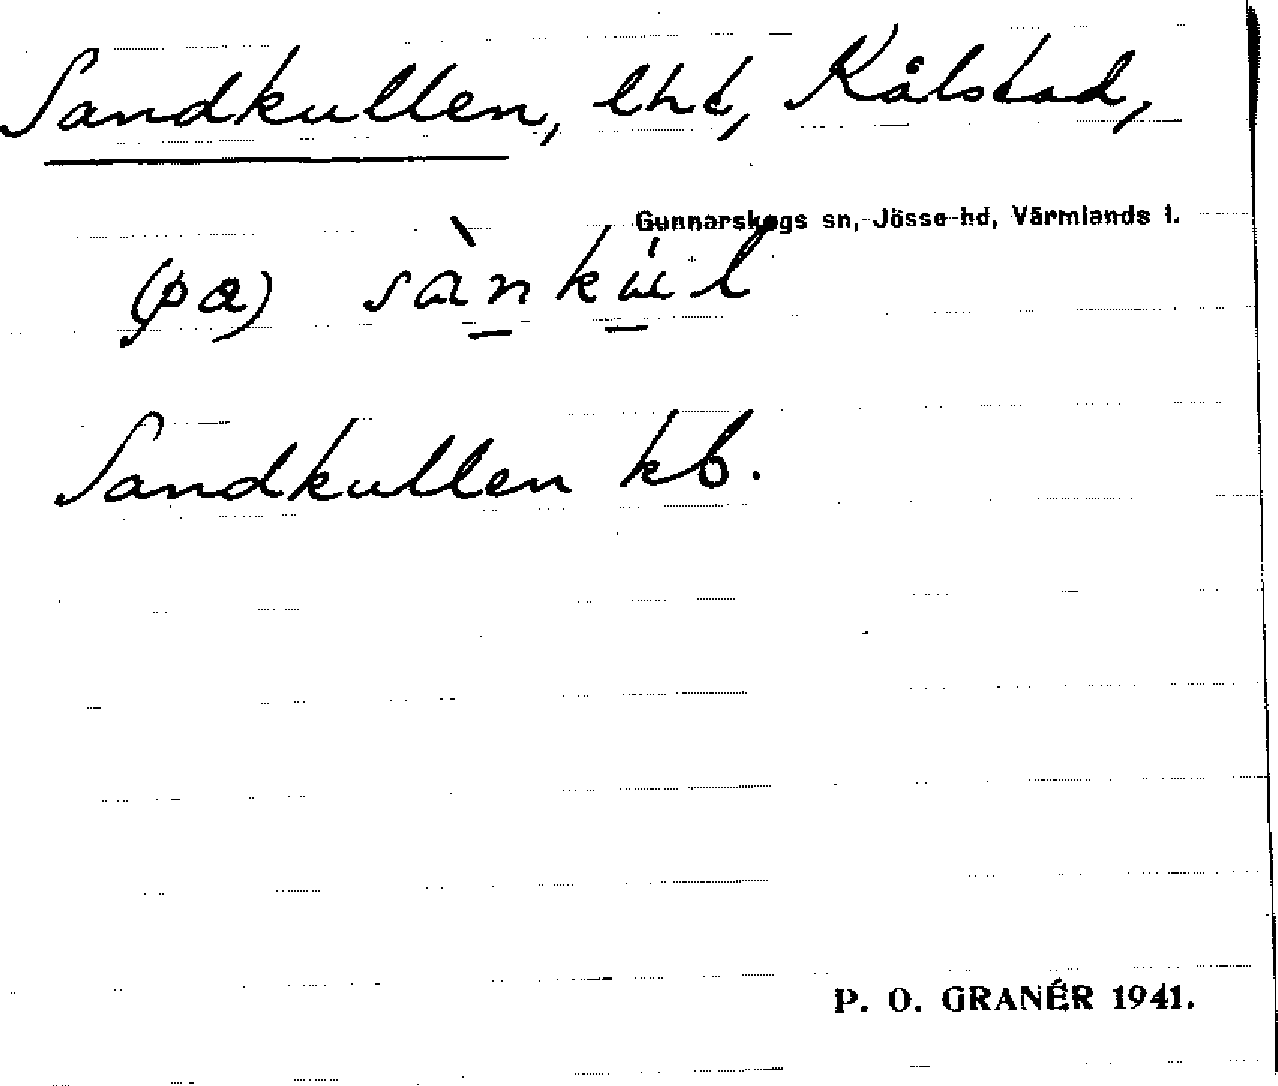 Sandkullen, lht, Kålstad,
Gunnarskogs sn, Jösse hd, Värmlands l.
(pa) sànkúl
Sandkullen kb.
P. O. GRANÉR 1941.